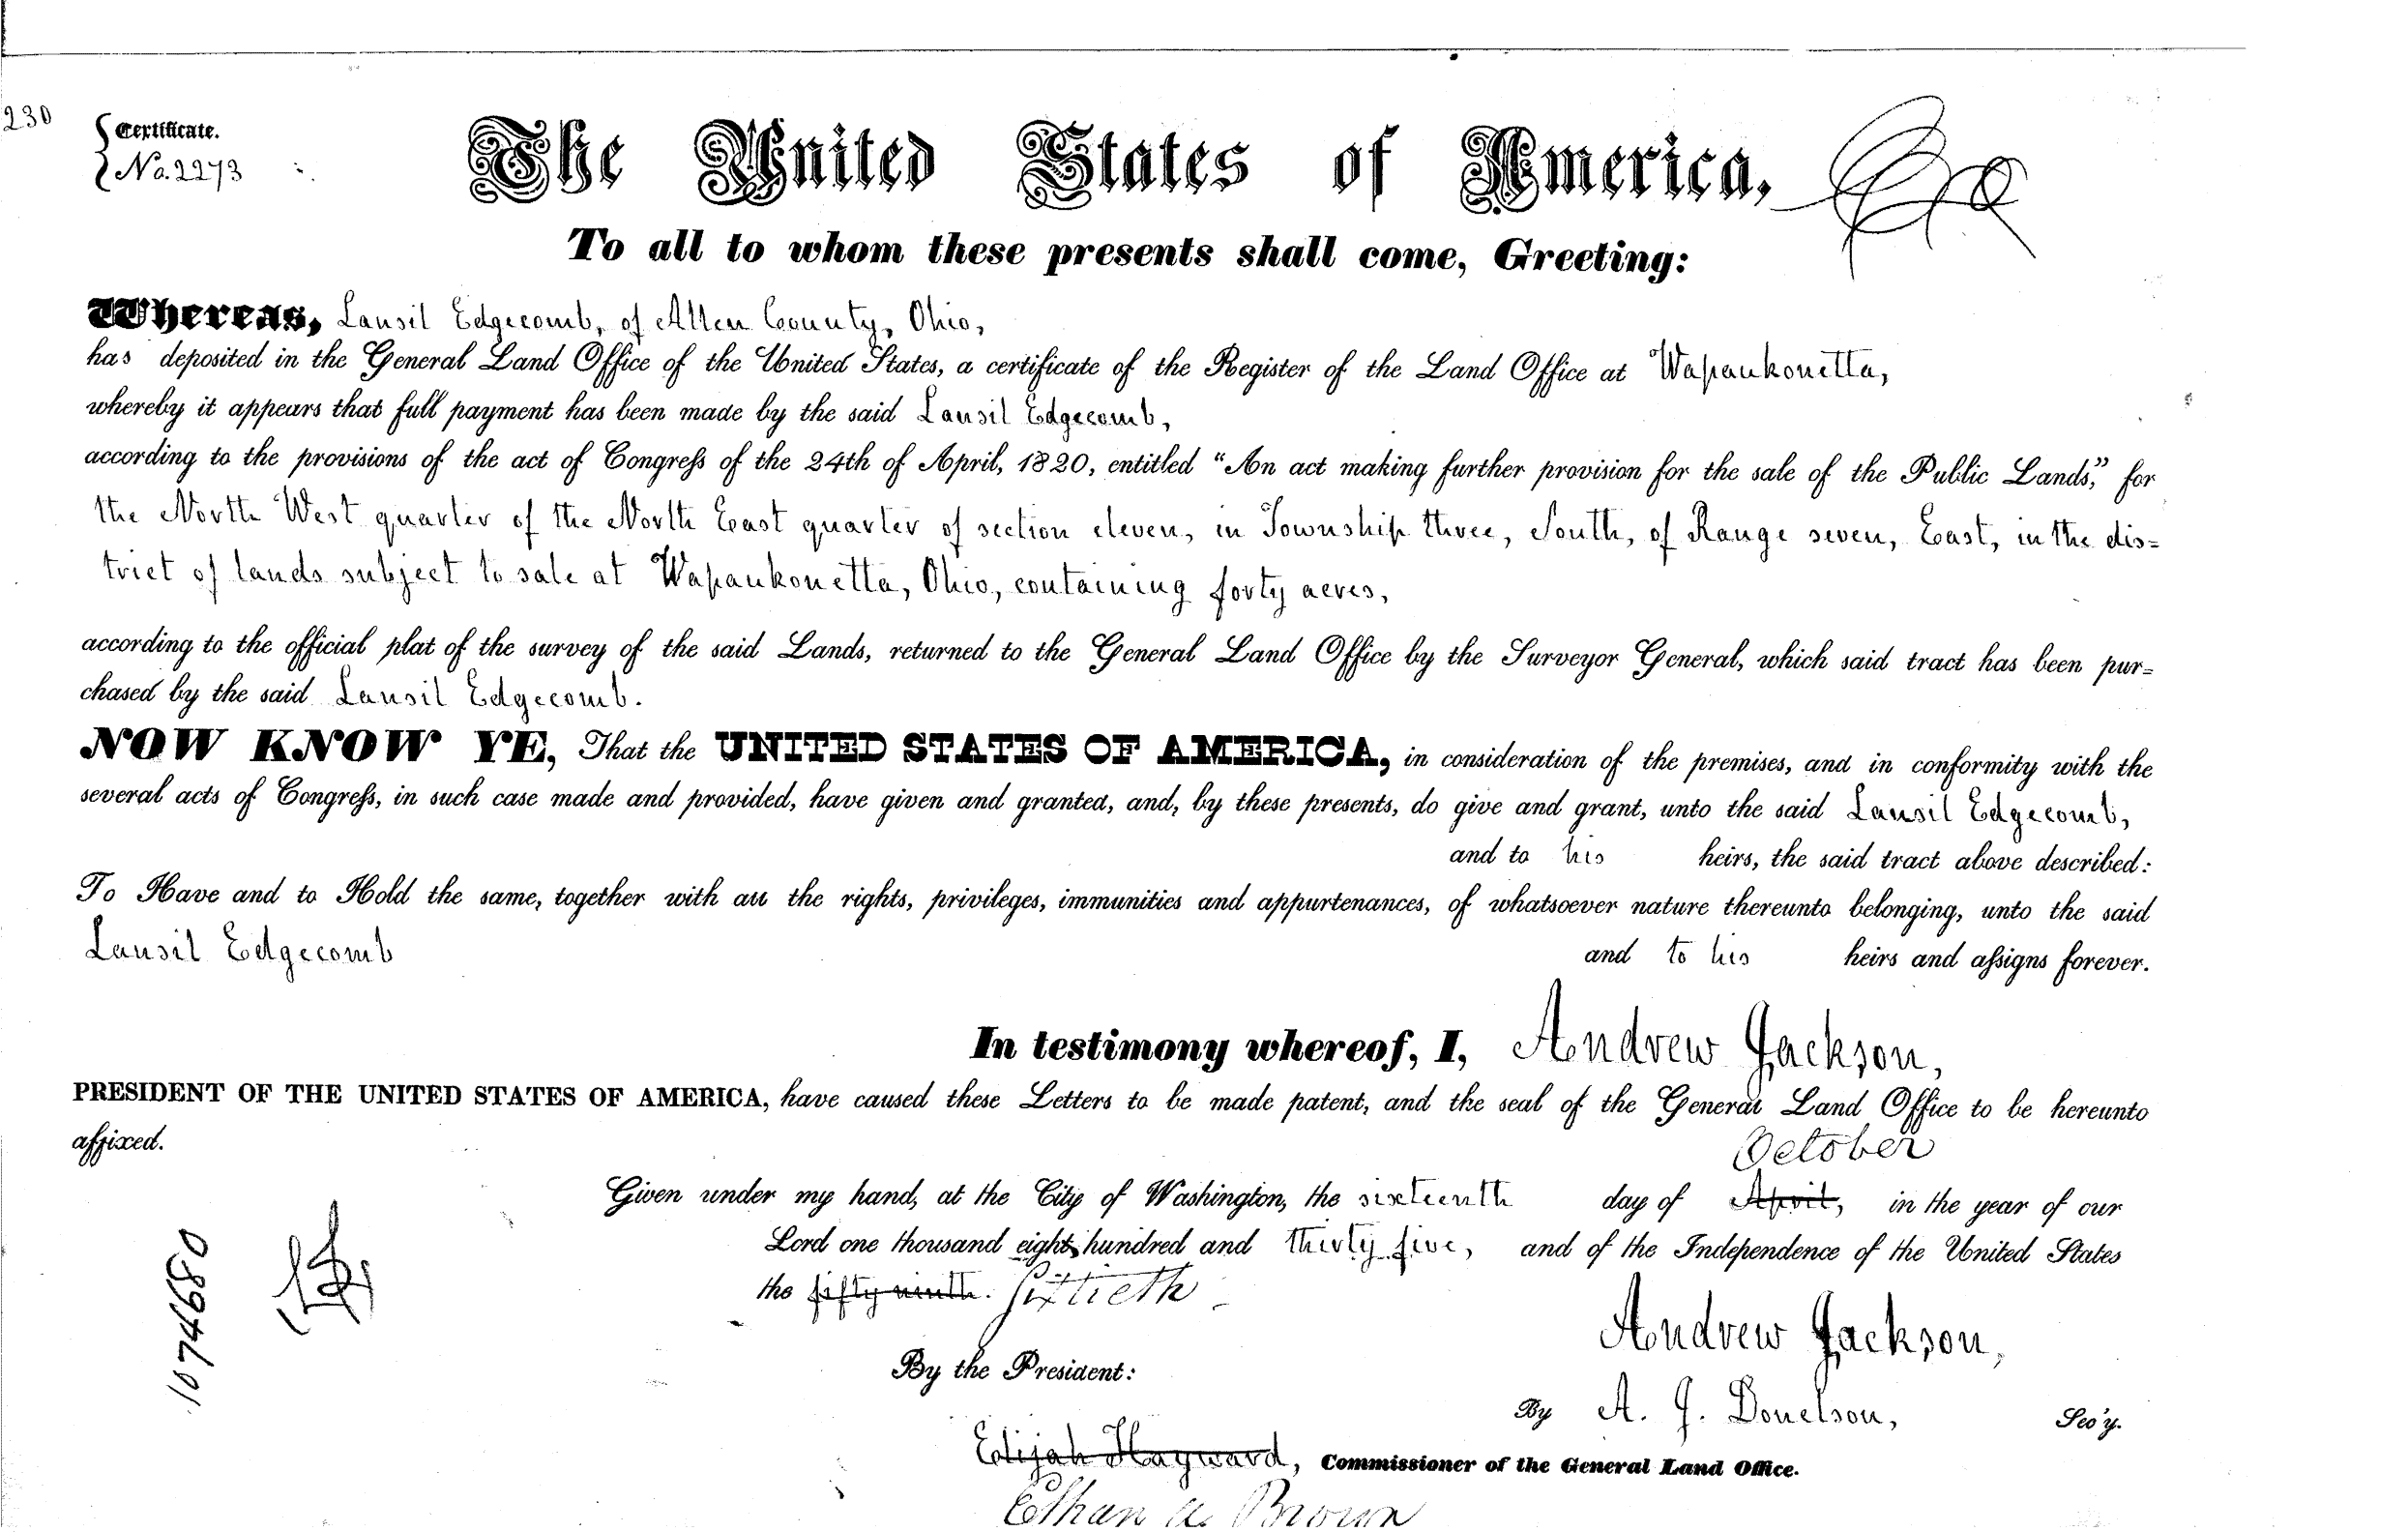 230
Certificate.
No. 2273
The United States of America,
To all to whom these presents shall come, Greeting:
Whereas, Lansil Edgecomb, of Allen County, Ohio,
has deposited in the General Land Office of the United States, a certificate of the Register of the Land Office at Wapaukonetta,
whereby it appears that full payment has been made by the said Lansil Edgecomb,
according to the provisions of the act of Congress of the 24th of April, 1820, entitled "An act making further provision for the sale of the Public Lands," for
the North West quarter of the North East quarter of section eleven, in Township three, South, of Range seven, East, in the dis=
trict of lands subject to sale at Wapaukonetta, Ohio, containing forty acres,
according to the official plat of the survey of the said Lands, returned to the General Land Office by the Surveyor General, which said tract has been pur=
chased by the said Lansil Edgecomb.
NOW KNOW YE, That the UNITED STATES OF AMERICA, in consideration of the premises, and in conformity with the
several acts of Congress, in such case made and provided, have given and granted, and, by these presents, do give and grant, unto the said Lansil Edgecomb,
and to his heirs, the said tract above described:
To Have and to Hold the same, together with all the rights, privileges, immunities and appurtenances, of whatsoever nature thereunto belonging, unto the said
Lansil Edgecomb and to his heirs and assigns forever.
In testimony whereof, I, Andrew Jackson,
PRESIDENT OF THE UNITED STATES OF AMERICA, have caused these Letters to be made patent, and the seal of the General Land Office to be hereunto
affixed.
October
Given under my hand, at the City of Washington, the sixteenth day of April, in the year of our
Lord one thousand eight hundred and thirty five, and of the Independence of the United States
the fifty ninth. Sixtieth
Andrew Jackson,
By the President:
By A. J. Donelson, Sec'y.
Elijah Hayward, Commissioner of the General Land Office.
Ethan A. Brown
1074680